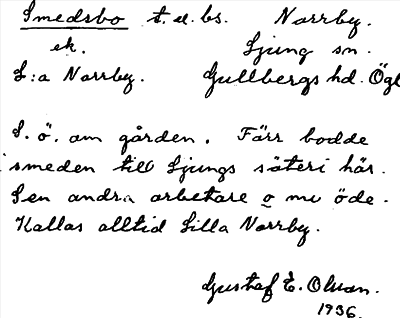 Smedsbo t. u. bs. Norrby.
ek. Ljung sn.
L:a Norrby. Gullbergs hd. Ögl
S. ö. om gården. Förr bodde
smeden till Ljungs säteri här.
Sen andra arbetare o nu öde.
Kallas alltid Lilla Norrby.
Gustaf E. Olsson.
1936.